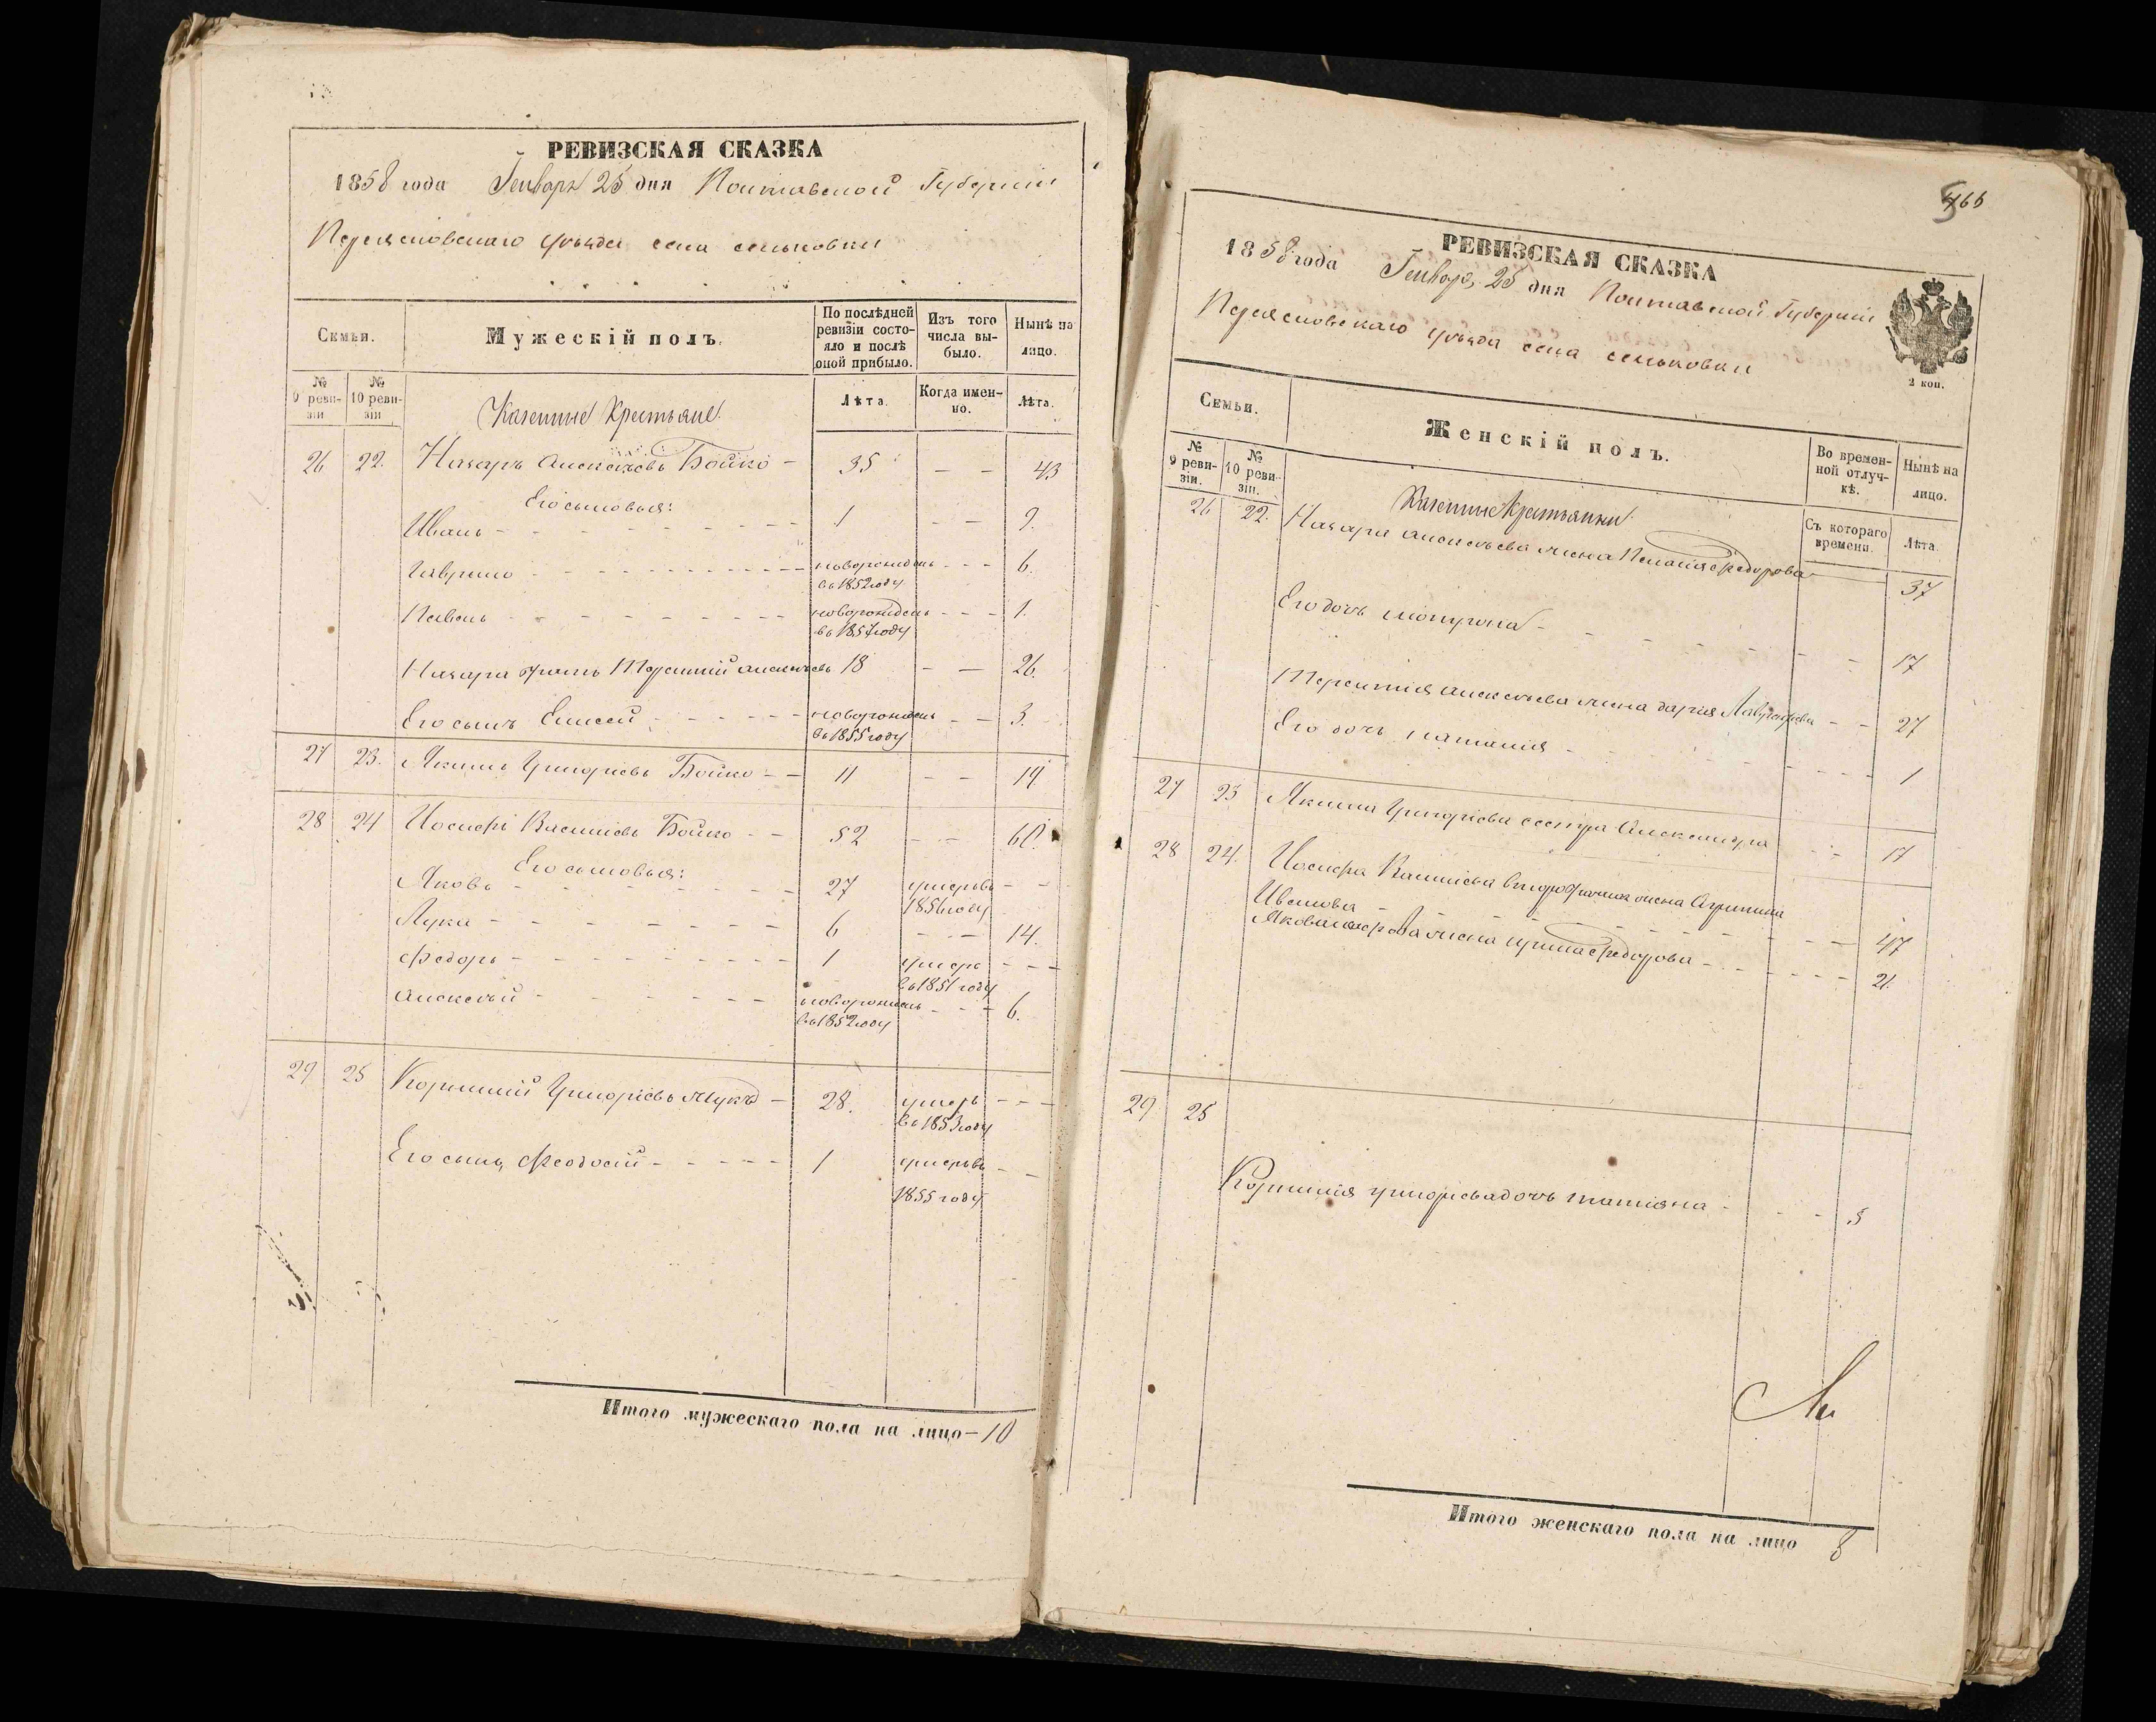 РЕВИЗСКАЯ СКАЗКА
1858 года Генваря 25 дня Полтавской Губерніи
Переясловскаго уѣзда села сеньковки
Семьи.
Мужескій полъ.
По послѣдней ревизіи состояло и послѣ оной прибыло.
Изъ того числа выбыло.
Нынѣ на лицо.
№ 9 ревизіи
№ 10 ревизіи
Казенные Крестьяне.
Лѣта
Когда именно.
Лѣта.
26 22. Назаръ Алексѣевъ Бойко - 35 - - 43
Его сыновья:
Иванъ - 1 - - 9.
Гаврило - новорожденъ - - - 6.
въ 1852 году
Павелъ - новорожденъ - - - 1.
въ 1857 году
Назара братъ Терентій Алексѣевъ 18 - - 26.
Его сынъ Елисей - новорожденъ - - 3.
въ 1855 году
27 23. Якимъ Григоріевъ Бойко - - 11 - - 19.
28 24 Иосифъ Василіевъ Бойко - - 52 - - 60.
Его сыновья:
Яковъ - 27 умеръ въ - -
1856 году
Лука - 6 - - 14.
Федоръ - 1 умеръ - - -
въ 1851 году
Алексѣй - новорожденъ - - - 6.
въ 1852 году
29 25 Корнилій Григоріевъ Мукъ - 28. умеръ - - -
въ 1853 году
Его сынъ Феодосій - 1 умеръ въ - -
1855 году
Итого мужескаго пола на лицо - 10
466
РЕВИЗСКАЯ СКАЗКА
1858 года Генваря 25 дня Полтавской Губерніи
Переясловскаго уѣзда села сеньковки
2 коп.
Семьи.
Женскій полъ.
Во временной отлучкѣ.
Нынѣ на лицо.
№ 9 ревизіи.
№ 10 ревизіи.
Казенные Крестьянки.
Съ котораго времени.
Лѣта.
26 22. Назара Алексѣева жена Пелагія Федорова 37
Его дочь 17
Терентія Алексѣева жена Дарія Лаврентіева - - 27
Его дочь Наталія - 1
27 23 Якима Григоріева сестра Александра - - 17
28 24. Иосифа Василіева второбрачная жена Агрипина
Иванова - 47
Якова Іосифова жена Ирина Федорова - 21.
29 25
Корнилія Григоріева дочь Татіяна - - - 5
Итого женскаго пола на лицо 8